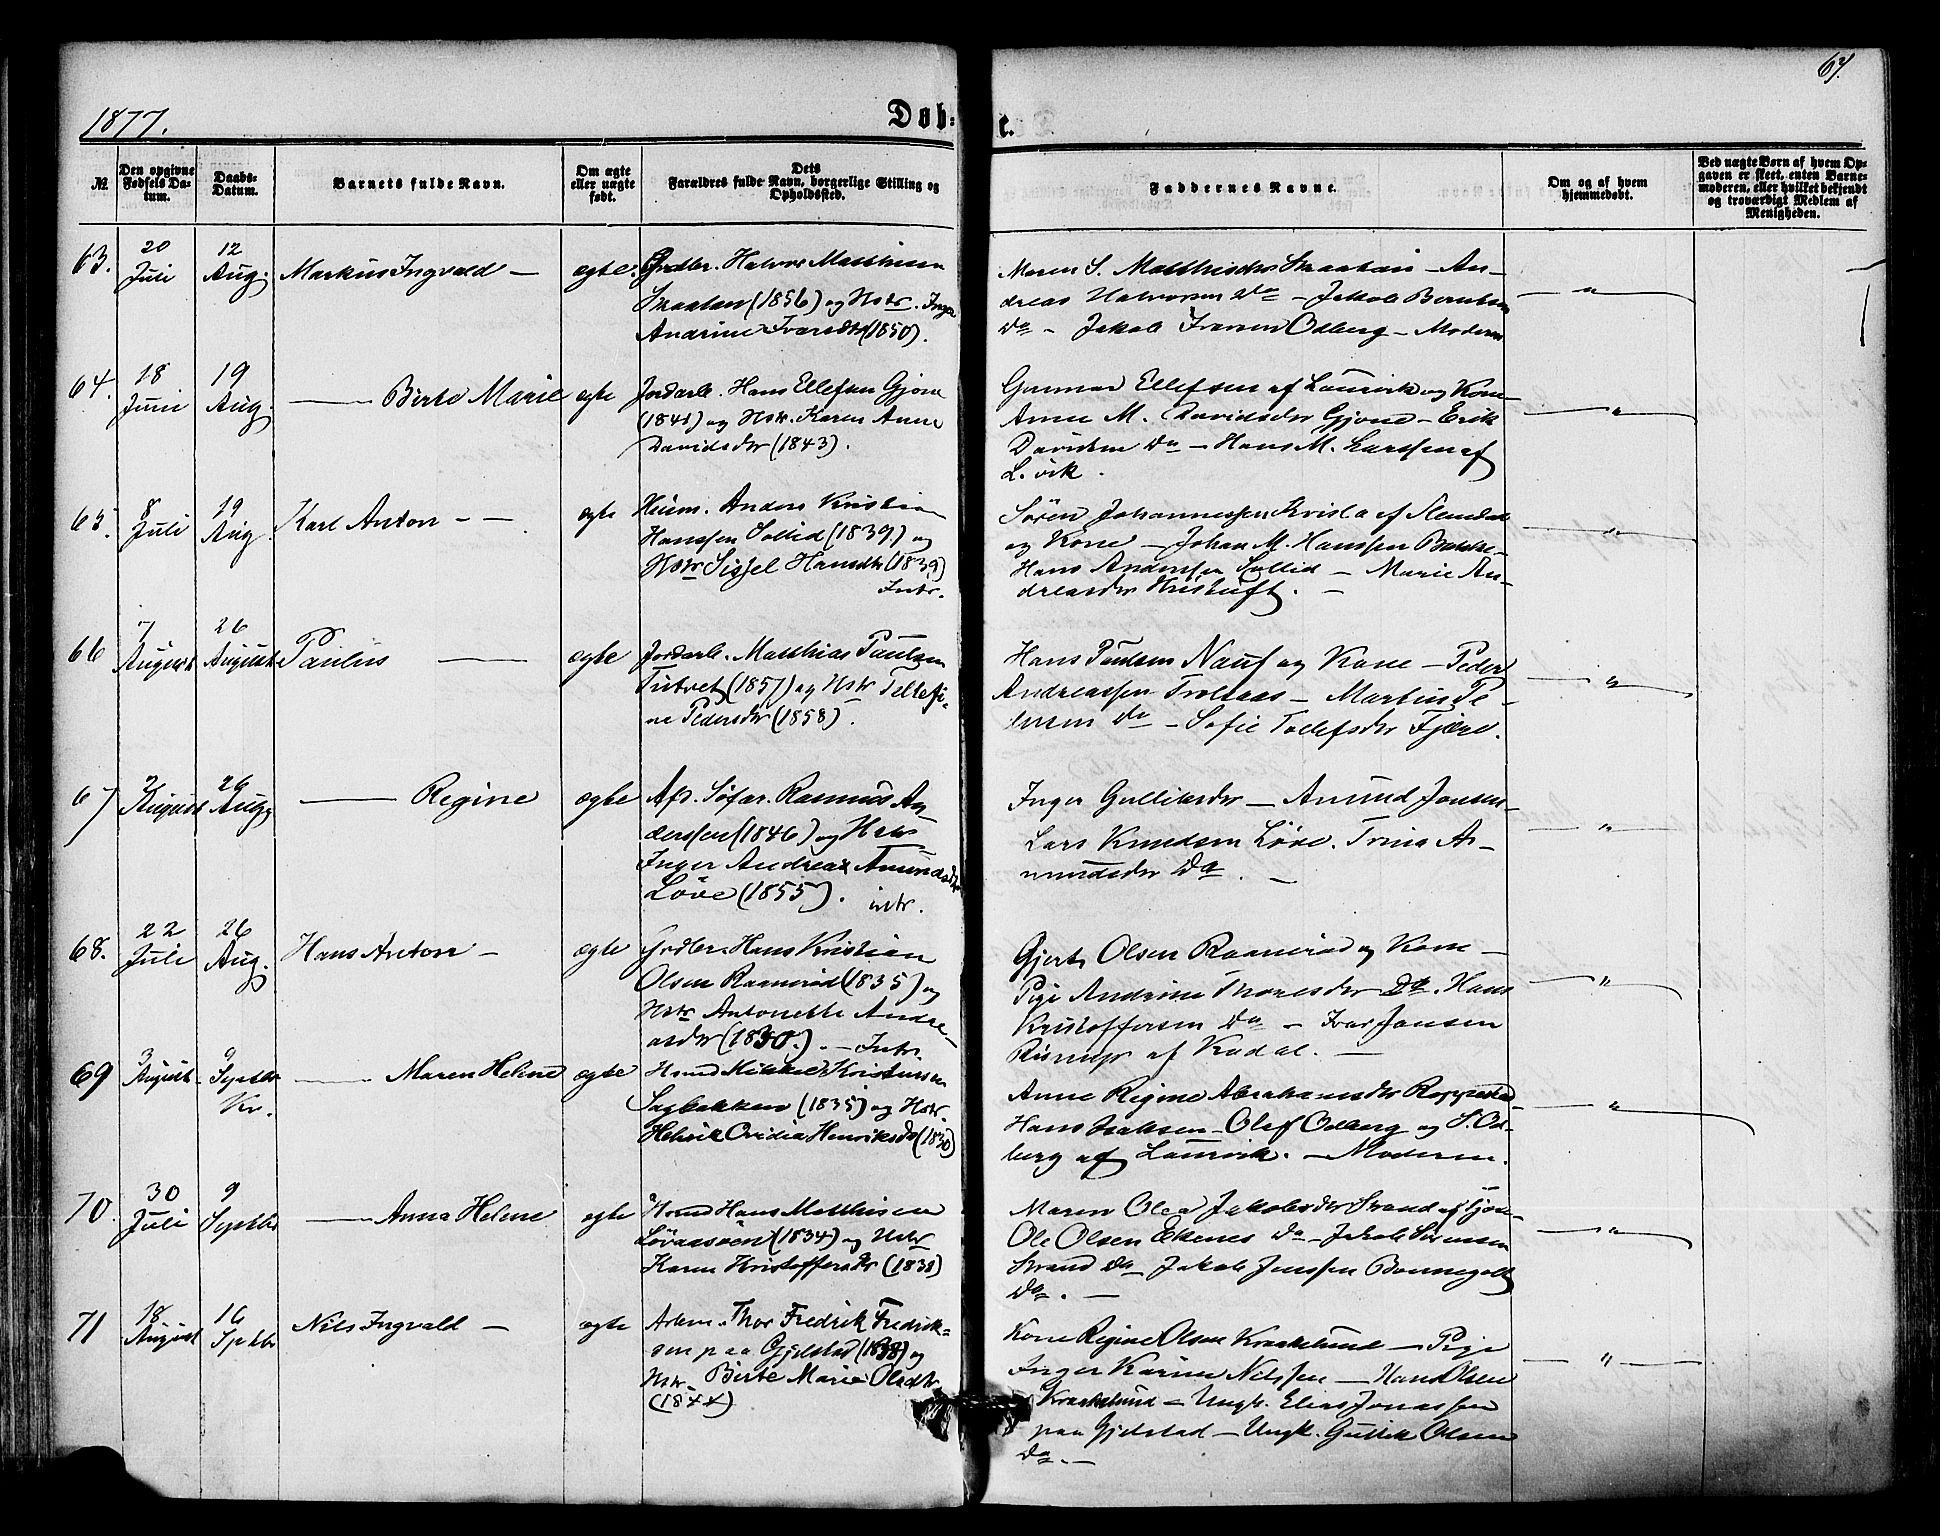 1877.
Døb-
t.
67.
№
Den opgivne Fødsels Datum.
Daabs-Datum.
Barnets fulde Navn.
Om ægte eller uægte født.
Dets Forældres fulde Navn, borgerlige Stilling og Opholdssted.
Faddernes Navne.
Om og af hvem hjemmedøbt.
Ved uægte Børn af hvem Opgaven er skeet, enten Barnemoderen, eller hvilket bekjendt og troværdigt Medlem af Menigheden.
63. 20 Juli 12 Aug. Markus Ingvald — ægte.
Halvor Matthisen
(1856) og Hstr. Inger
Andrine Ivarsdtr (1850).
Maren S. Matthisdtr — An-
dreas Halvorsen Do — Jakob Berntsen
Do — Jakob Iversen Odberg — Moderen
— " —
64. 18 Juni 19 Aug. — Birte Marie ægte
Jordarb. Hans Ellefsen Gjone
(1841) og Hstr. Karen Anne
Davidsdtr (1843).
Gunnar Ellefsen af Laurvik og Kone
Anne M. Davidsdtr Gjone — Erik
Davidsen Do — Hans M. Larssen af
L.vik.
— " —
65. 8 Juli 19 Aug. Karl Anton — — ægte
Husm. Anders Kristian
Hanssen Sollid (1839) og
Hstr Sissel Hansdtr (1839)
Intr.
Sören Johannessen Kvisla af Slemdal
og Kone — Johan M. Hanssen
Hans Anderssen Sollid — Marie An-
dreasdtr —
— " —
66 7 August 26 August Paulus — ægte
Jordarb. Matthias Paulsen
(1857) og Hstr Tellefi-
ne Pedersdtr (1858).
Hans Paulsen og Kone — Peder
Andreassen — Martin Pe-
dersen Do — Sofie Tollefsdtr Fjære.
— " —
67 2 August 26 Aug. — Regine ægte
Afs. Söfar. Rasmus An-
derssen (1846) og Hstr
Inger Andrea Amundsdtr
Löve (1855). intr.
Inger Gulliksdtr — Amund Jonsen
Lars Knudsen Löve. Trine A-
mundsdtr Do. —
— " —
68. 22 Juli 26 Aug. Hans Anton — ægte
Hans Kristian
Olsen Raamerød (1835) og
Hstr Antonette Andre-
asdtr (1830.). — Intr.
Gjert Olsen Raamerød og Kone —
Pige Andrine Thoresdtr Do. Hans
Kristoffersen Do — Ivar Jansen
af Kodal. —
— " —
69 3 August 9 Septbr Kv. — Maren Helene ægte
Hsmd Mikkel Kristensen
Sagbakken (1835) og Hstr.
Helvik Ovidia Henriksdtr (1830)
Anne Regine Abrahamsdtr Roppestad
Hans Isaksen — Olaf Odberg og S. Od-
berg af Laurvik. — Moderen.
— " —
70. 30 Juli 9 Septbr — Anna Helene ægte
Hsmd Hans Matthisen
Løvaasøen (1834) og Hstr
Karen Kristoffersdtr (1838)
Maren Olea Jakobsdtr Strand af Gjon-
Ole Olsen Ekenes Do — Jakob Sørenssen
Strand Do — Jakob Jenssen
Do. —
— " —
71 18 August 16 Septbr Nils Ingvald — ægte
Arbm. Thor Fredrik Fredrik-
sen paa Gjelstad (1838) og
Hstr. Birte Marie Olsdtr
(1844)
Kone Regine Olsen Kraakelund — Pige
Inger Karine Nilssen — Hans Olsen
Kraakelund — Ungk. Elias Jonassen
paa Gjelstad — Ungk. Gullik Olsen
Do. —
— " —